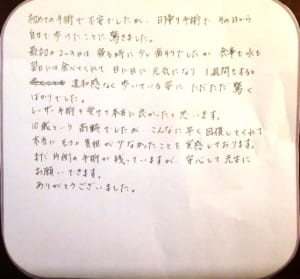 初めての手術で不安でしたが、日帰り手術で その日から
自分で歩けたことに驚きました。
最初の2〜3日は 寝る時に少し痛そうでしたが 食事も水も
翌日には食べてくれて 日に日に 元気になり 1週間もすると
違和感なく 歩いている姿に ただただ 驚く
ばかりでした。
レーザー手術を受けて本当に良かったと思います。
10歳という 高齢でしたが、こんなに早く回復してくれて
本当に 体の負担が少なかったことを実感しております。
まだ片側の手術が残っていますが、安心して先生に
お願いできます。
ありがとうございました。